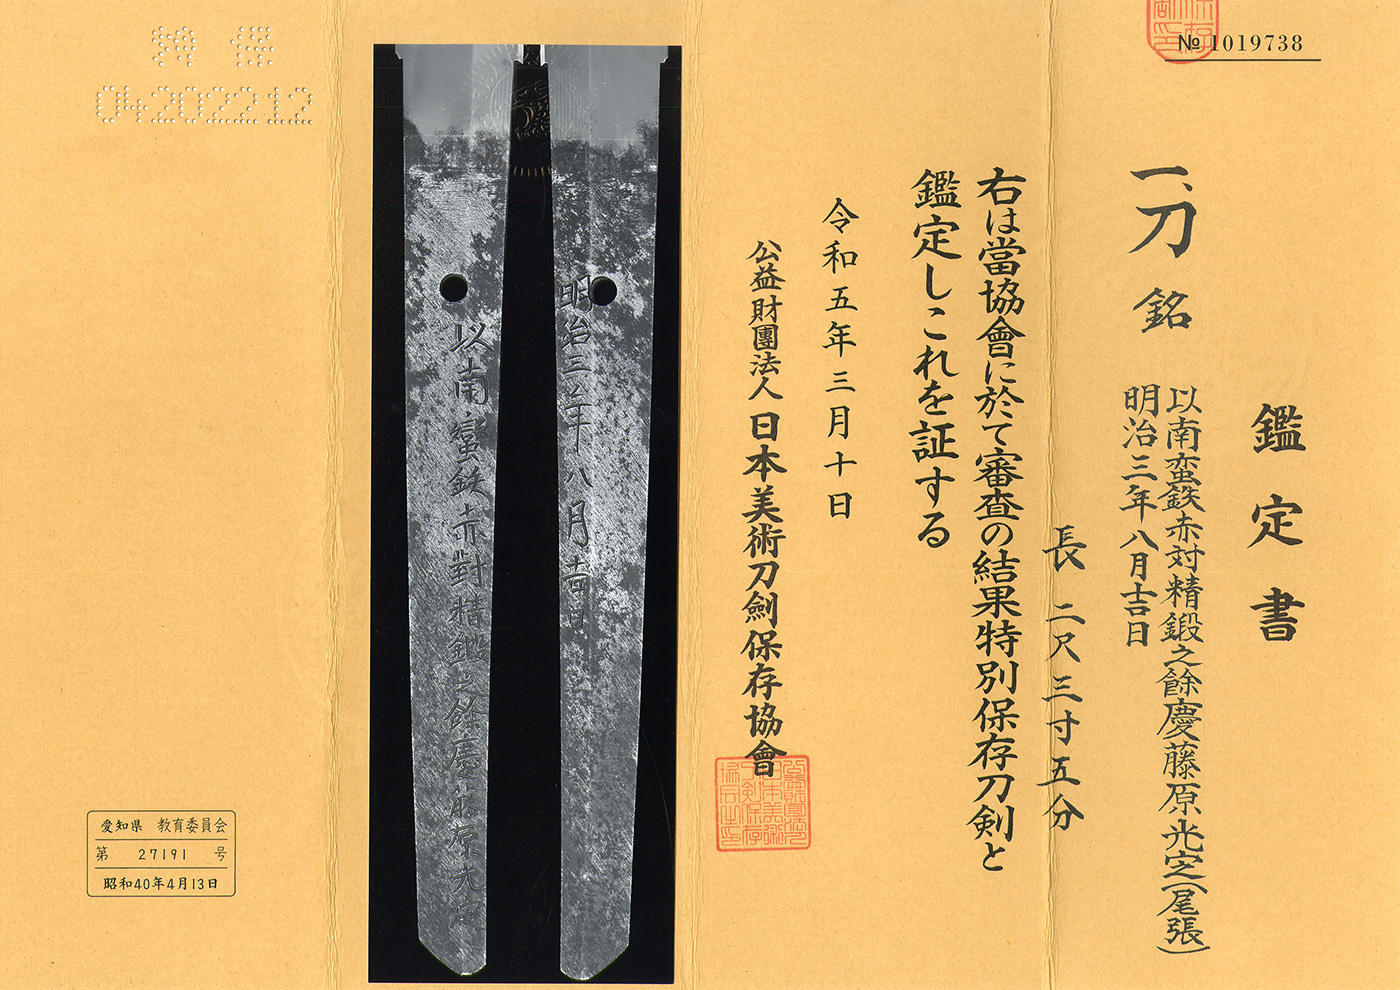 № 1019738
鑑定書
一、刀 銘 以南蛮鉄赤対精鍛之餘慶藤原光定(尾張)
明治三年八月吉日
長 二尺三寸五分
右は當協會に於て審査の結果特別保存刀剣と
鑑定しこれを証する
令和五年三月十日
公益財團法人 日本美術刀劍保存協會
明治三年八月吉日
以南蠻鉄赤對精鍛之餘慶藤原光定
特 保
04202212
愛知県 教育委員会
第 27191 号
昭和40年4月13日